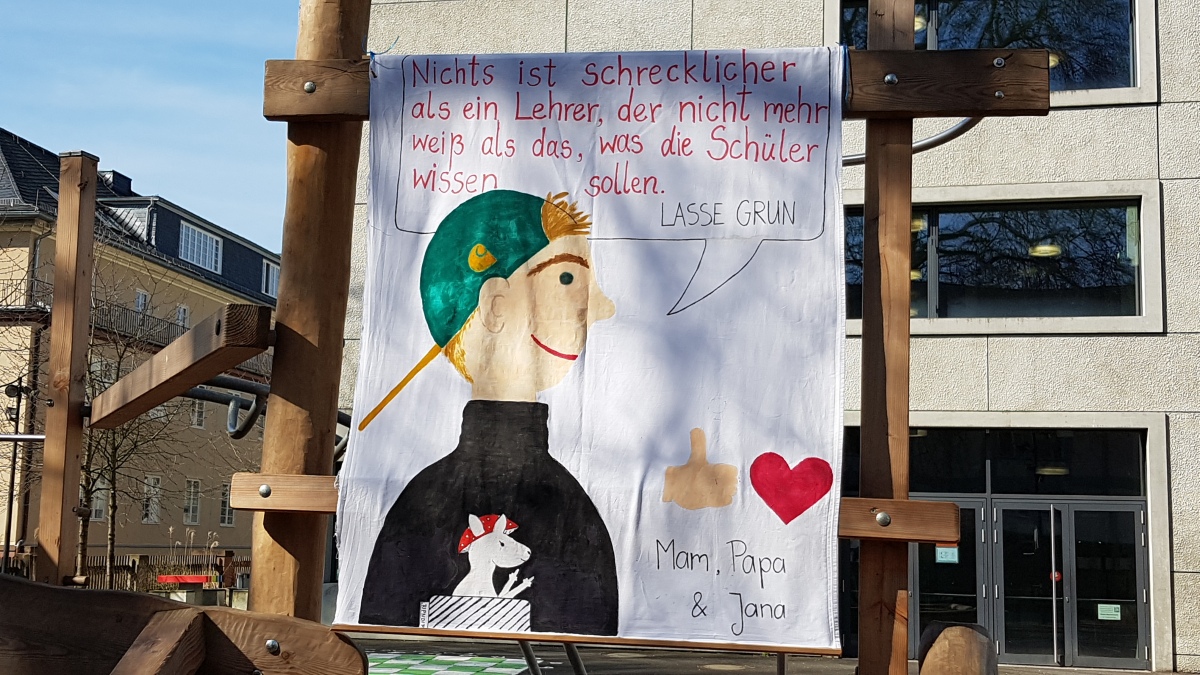 Nichts ist schrecklicher
als ein Lehrer, der nicht mehr
weiß als das, was die Schüler
wissen sollen.
LASSE GRUN
Mam, Papa
& Jana